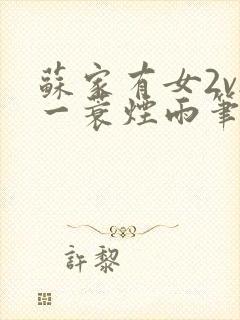 蘇家有女2v
一蓑煙雨筆
許黎